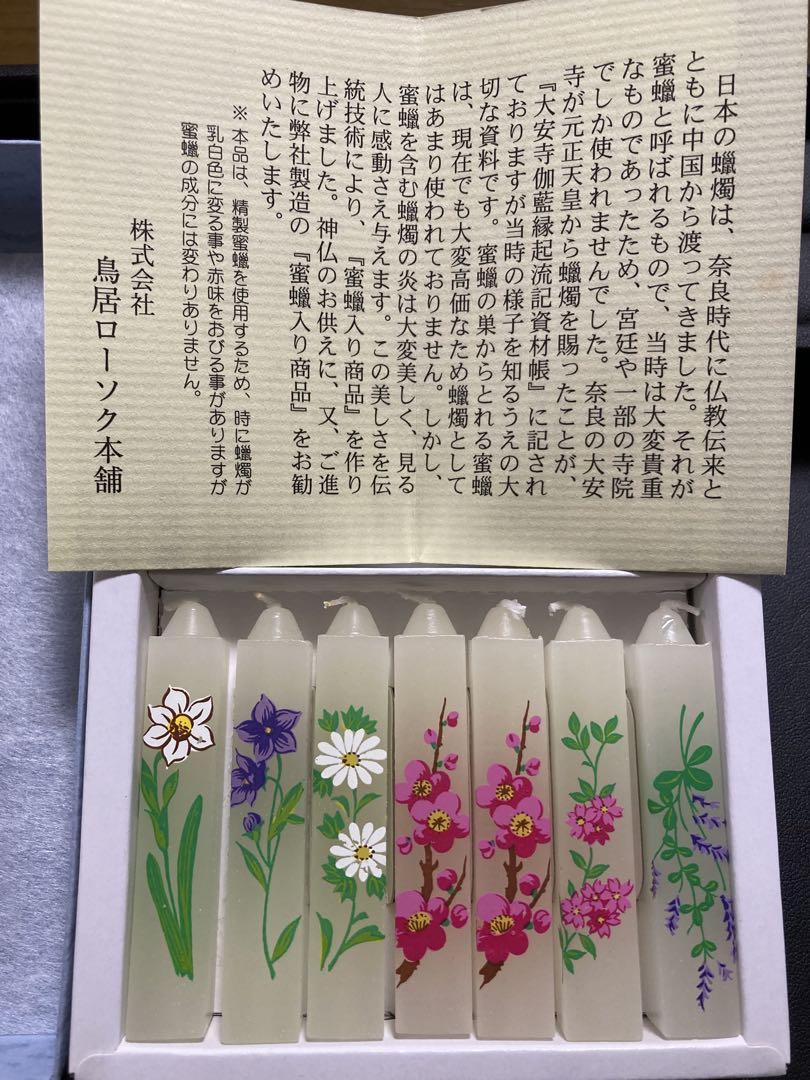 日本の蠟燭は、奈良時代に仏教伝来と
ともに中国から渡ってきました。それが
蜜蠟と呼ばれるもので、当時は大変貴重
なものであったため、宮廷や一部の寺院
でしか使われませんでした。奈良の大安
寺が元正天皇から蠟燭を賜ったことが、
『大安寺伽藍縁起流記資材帳』に記され
ておりますが当時の様子を知るうえの大
切な資料です。蜜蠟の巣からとれる蜜蠟
は、現在でも大変高価なため蠟燭として
はあまり使われておりません。しかし、
蜜蠟を含む蠟燭の炎は大変美しく、見る
人に感動さえ与えます。この美しさを伝
統技術により、『蜜蠟入り商品』を作り
上げました。神仏のお供えに、又、ご進
物に弊社製造の『蜜蠟入り商品』をお勧
めいたします。
※ 本品は、精製蜜蠟を使用するため、時に蠟燭が
乳白色に変る事や赤味をおびる事がありますが
蜜蠟の成分には変わりありません。
株式会社
鳥居ローソク本舗